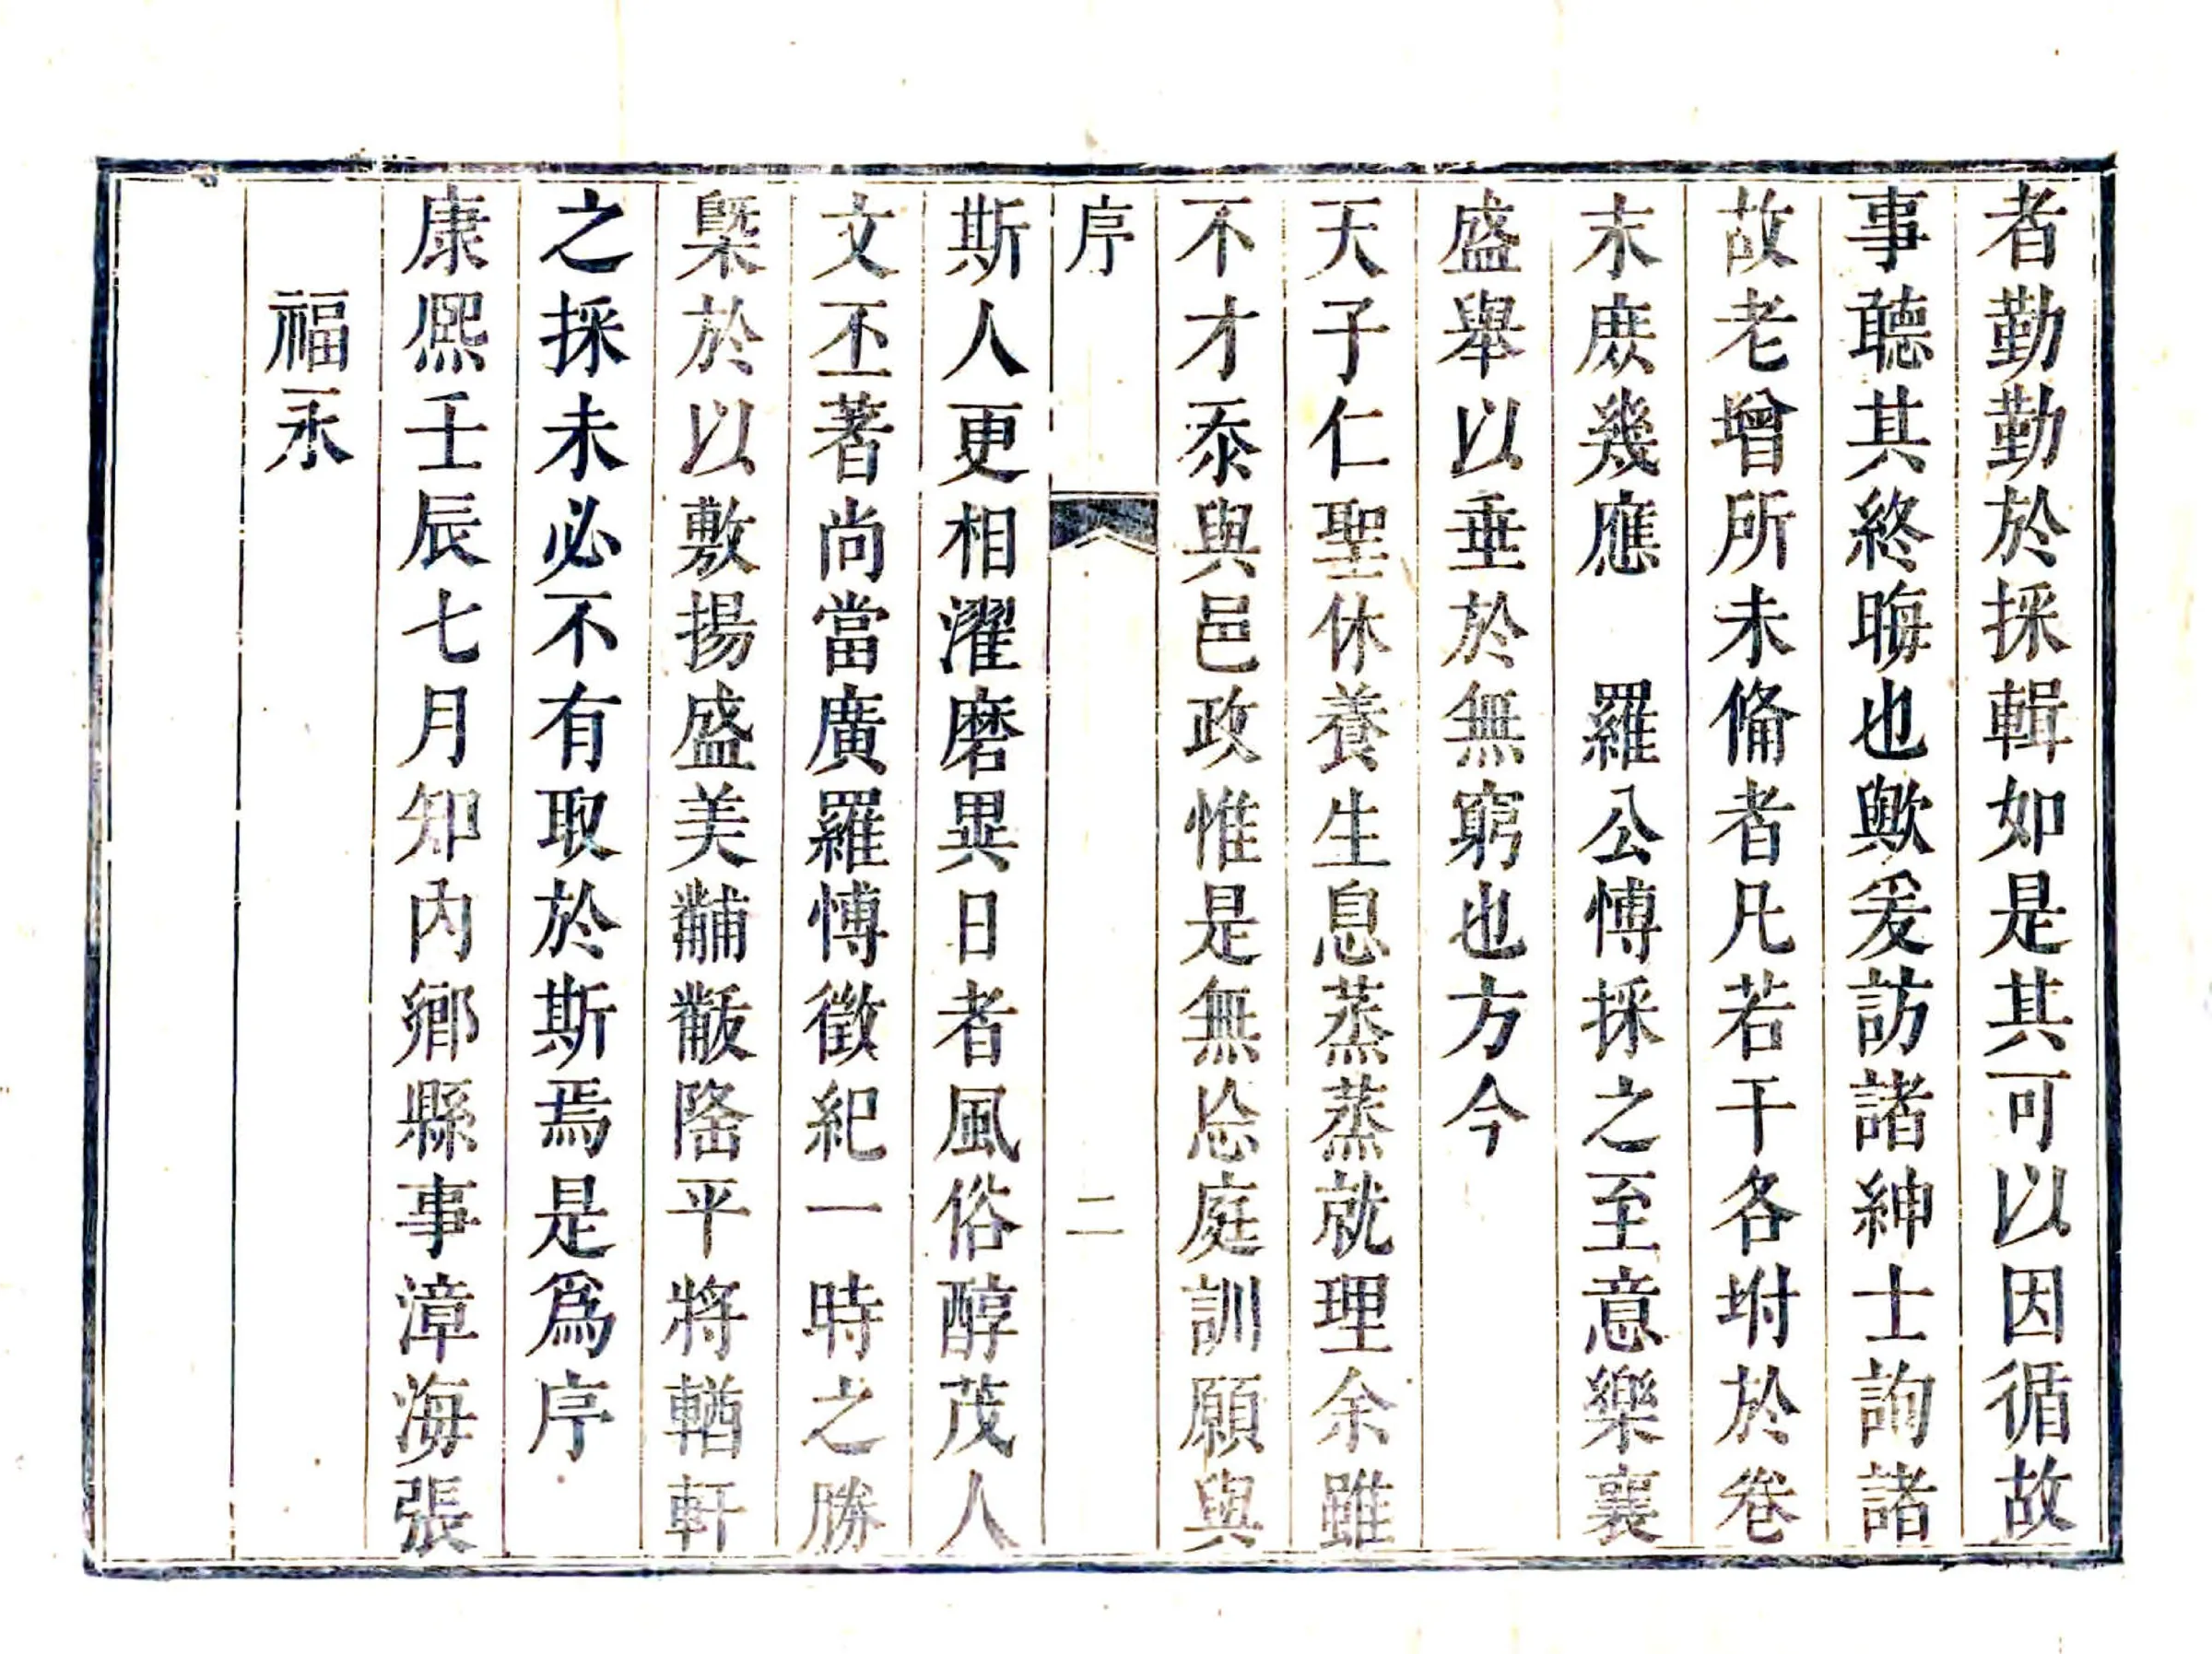 者勤勤於採輯如是其可以因循故
事聽其終晦也歟爰訪諸紳士詢諸
故老增所未備者凡若干各坿於卷
末庶幾應　羅公博採之至意樂襄
盛舉以垂於無窮也方今
天子仁聖休養生息蒸蒸就理余雖
不才忝與邑政惟是無忝庭訓願與
序　二
斯人更相濯磨異日者風俗醇茂人
文丕著尚當廣羅博徵紀一時之勝
槩於以敷揚盛美黼黻隆平將輶軒
之採未必不有取於斯焉是爲序
康熙壬辰七月知內鄉縣事漳海張
福永